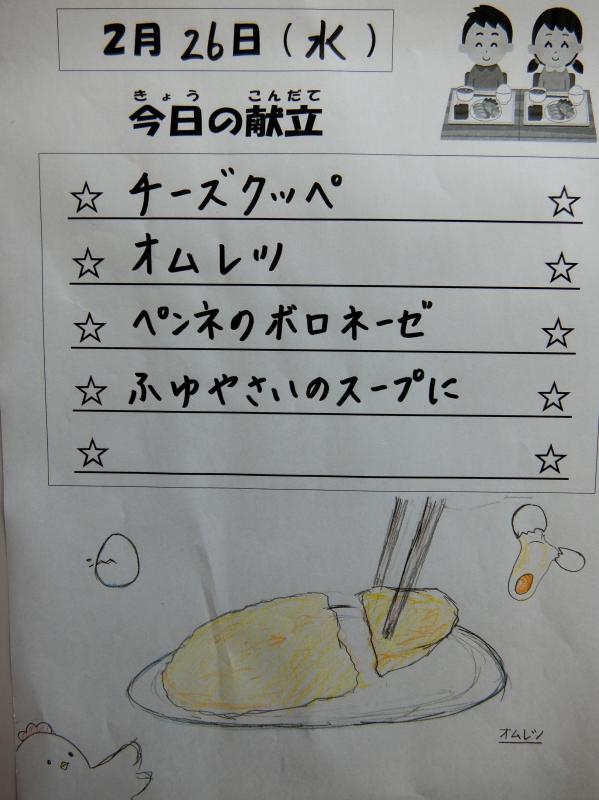 2月26日(水)
きょう こんだて
今日の献立
☆ チーズクッペ ☆
☆ オムレツ ☆
☆ ペンネのボロネーゼ ☆
☆ ふゆやさいのスープに ☆
☆ ☆
オムレツ